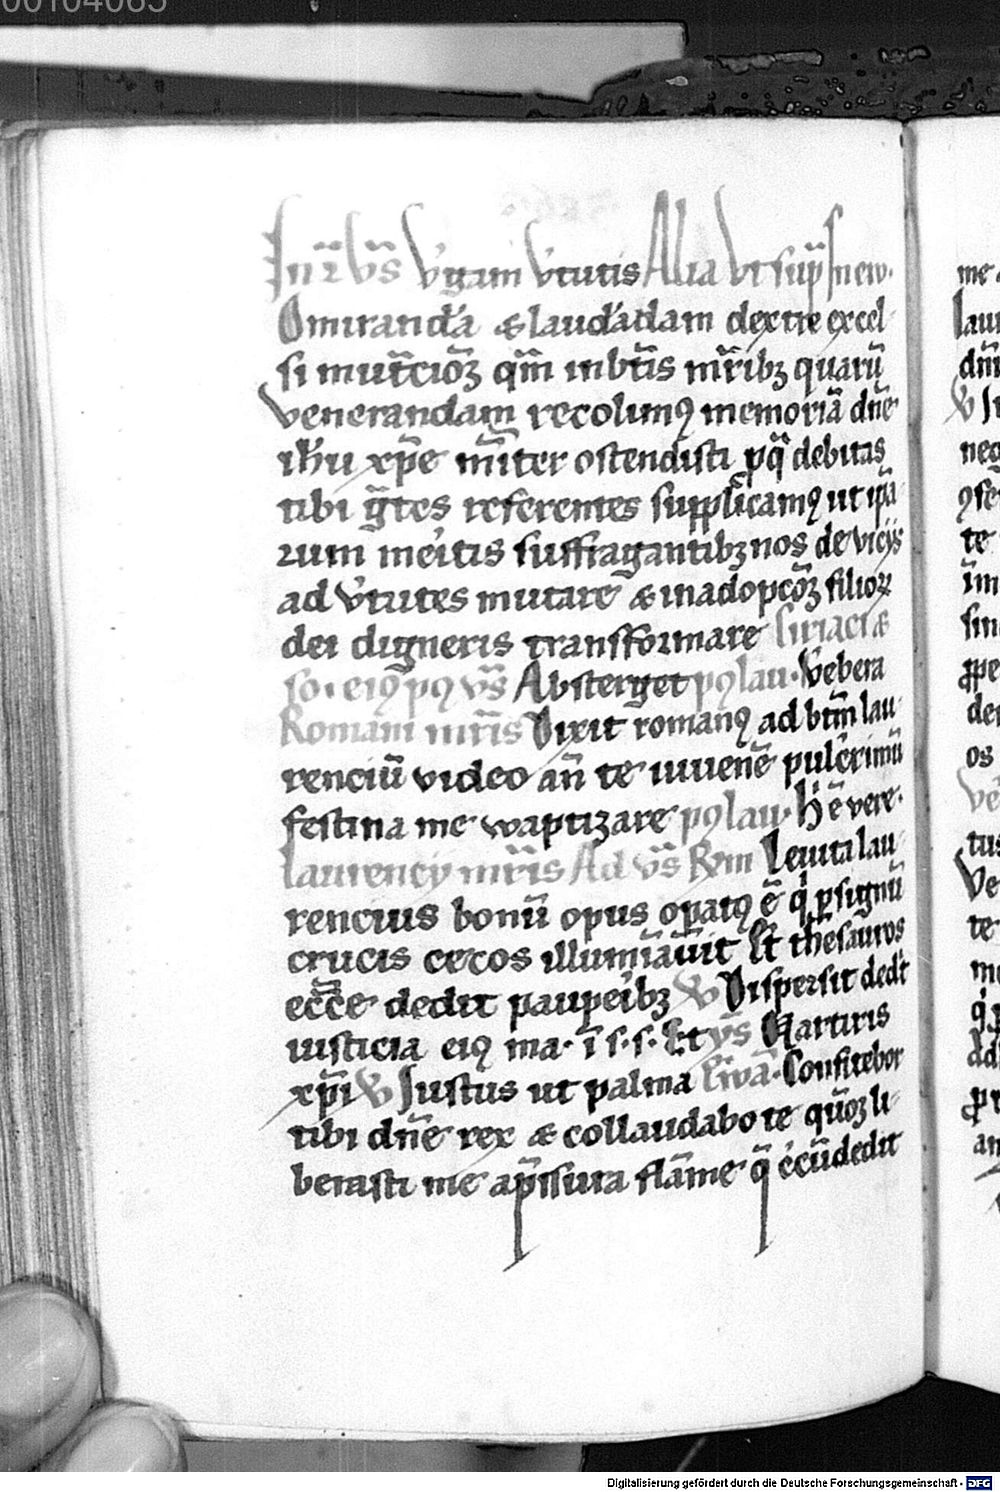 00104065
In 2 vs̄ Virgam v̓tutis Alia Vt sup̄ In ev.
O miranda᷑ & laudādam dextre excel-
si mutc̄ioꝫ qm̄ in bt̄is mr̄ibꝫ quarū
venerandam recolimꝰ memoriā dn̄e
ih̄u xp̄e mīiter ostendisti ꝓ qͣ debitas
tibi gr̄tes referentes suppl̓icamꝰ ut ip̄a-
rum mei̓tis suffragantibꝫ nos de vicijs
ad v̓tutes mutare & in adopc̄oꝫ filioꝝ
dei digneris transformare Siriaci &
so. eiꝰ ꝓꝰ vs̄ Absterget ꝓꝰ lau. Ve̓bera
Romani mr̄is Dixit romanꝰ ad btm̄ lau-
renciū video an̄ te iuvenē pulc̓rimū
festina me waptizare ꝓꝰ lau. Hē vere.
laurencij mr̄is Ad vs̄ Rm̄ Levita lau-
rencius bonū opus op̱atꝰ ē qͥ ꝑ signū
crucis cecos illumīavit Et thesauros
ecc̄e dedit paupei̓bꝫ V Dispersit dedit
iusticia eiꝰ ma. ī s. s. Et ys̄ Martiris
xp̄i V Justus ut palma Confitebor
tibi dn̄e rex & collaudabo te qm̄ li-
berasti me a p̄ssura flāme q̄ c̓cūdedit
me
lau
dm̄
te
os
tus
Ve
te
Digitalisierung gefördert durch die Deutsche Forschungsgemeinschaft - DFG